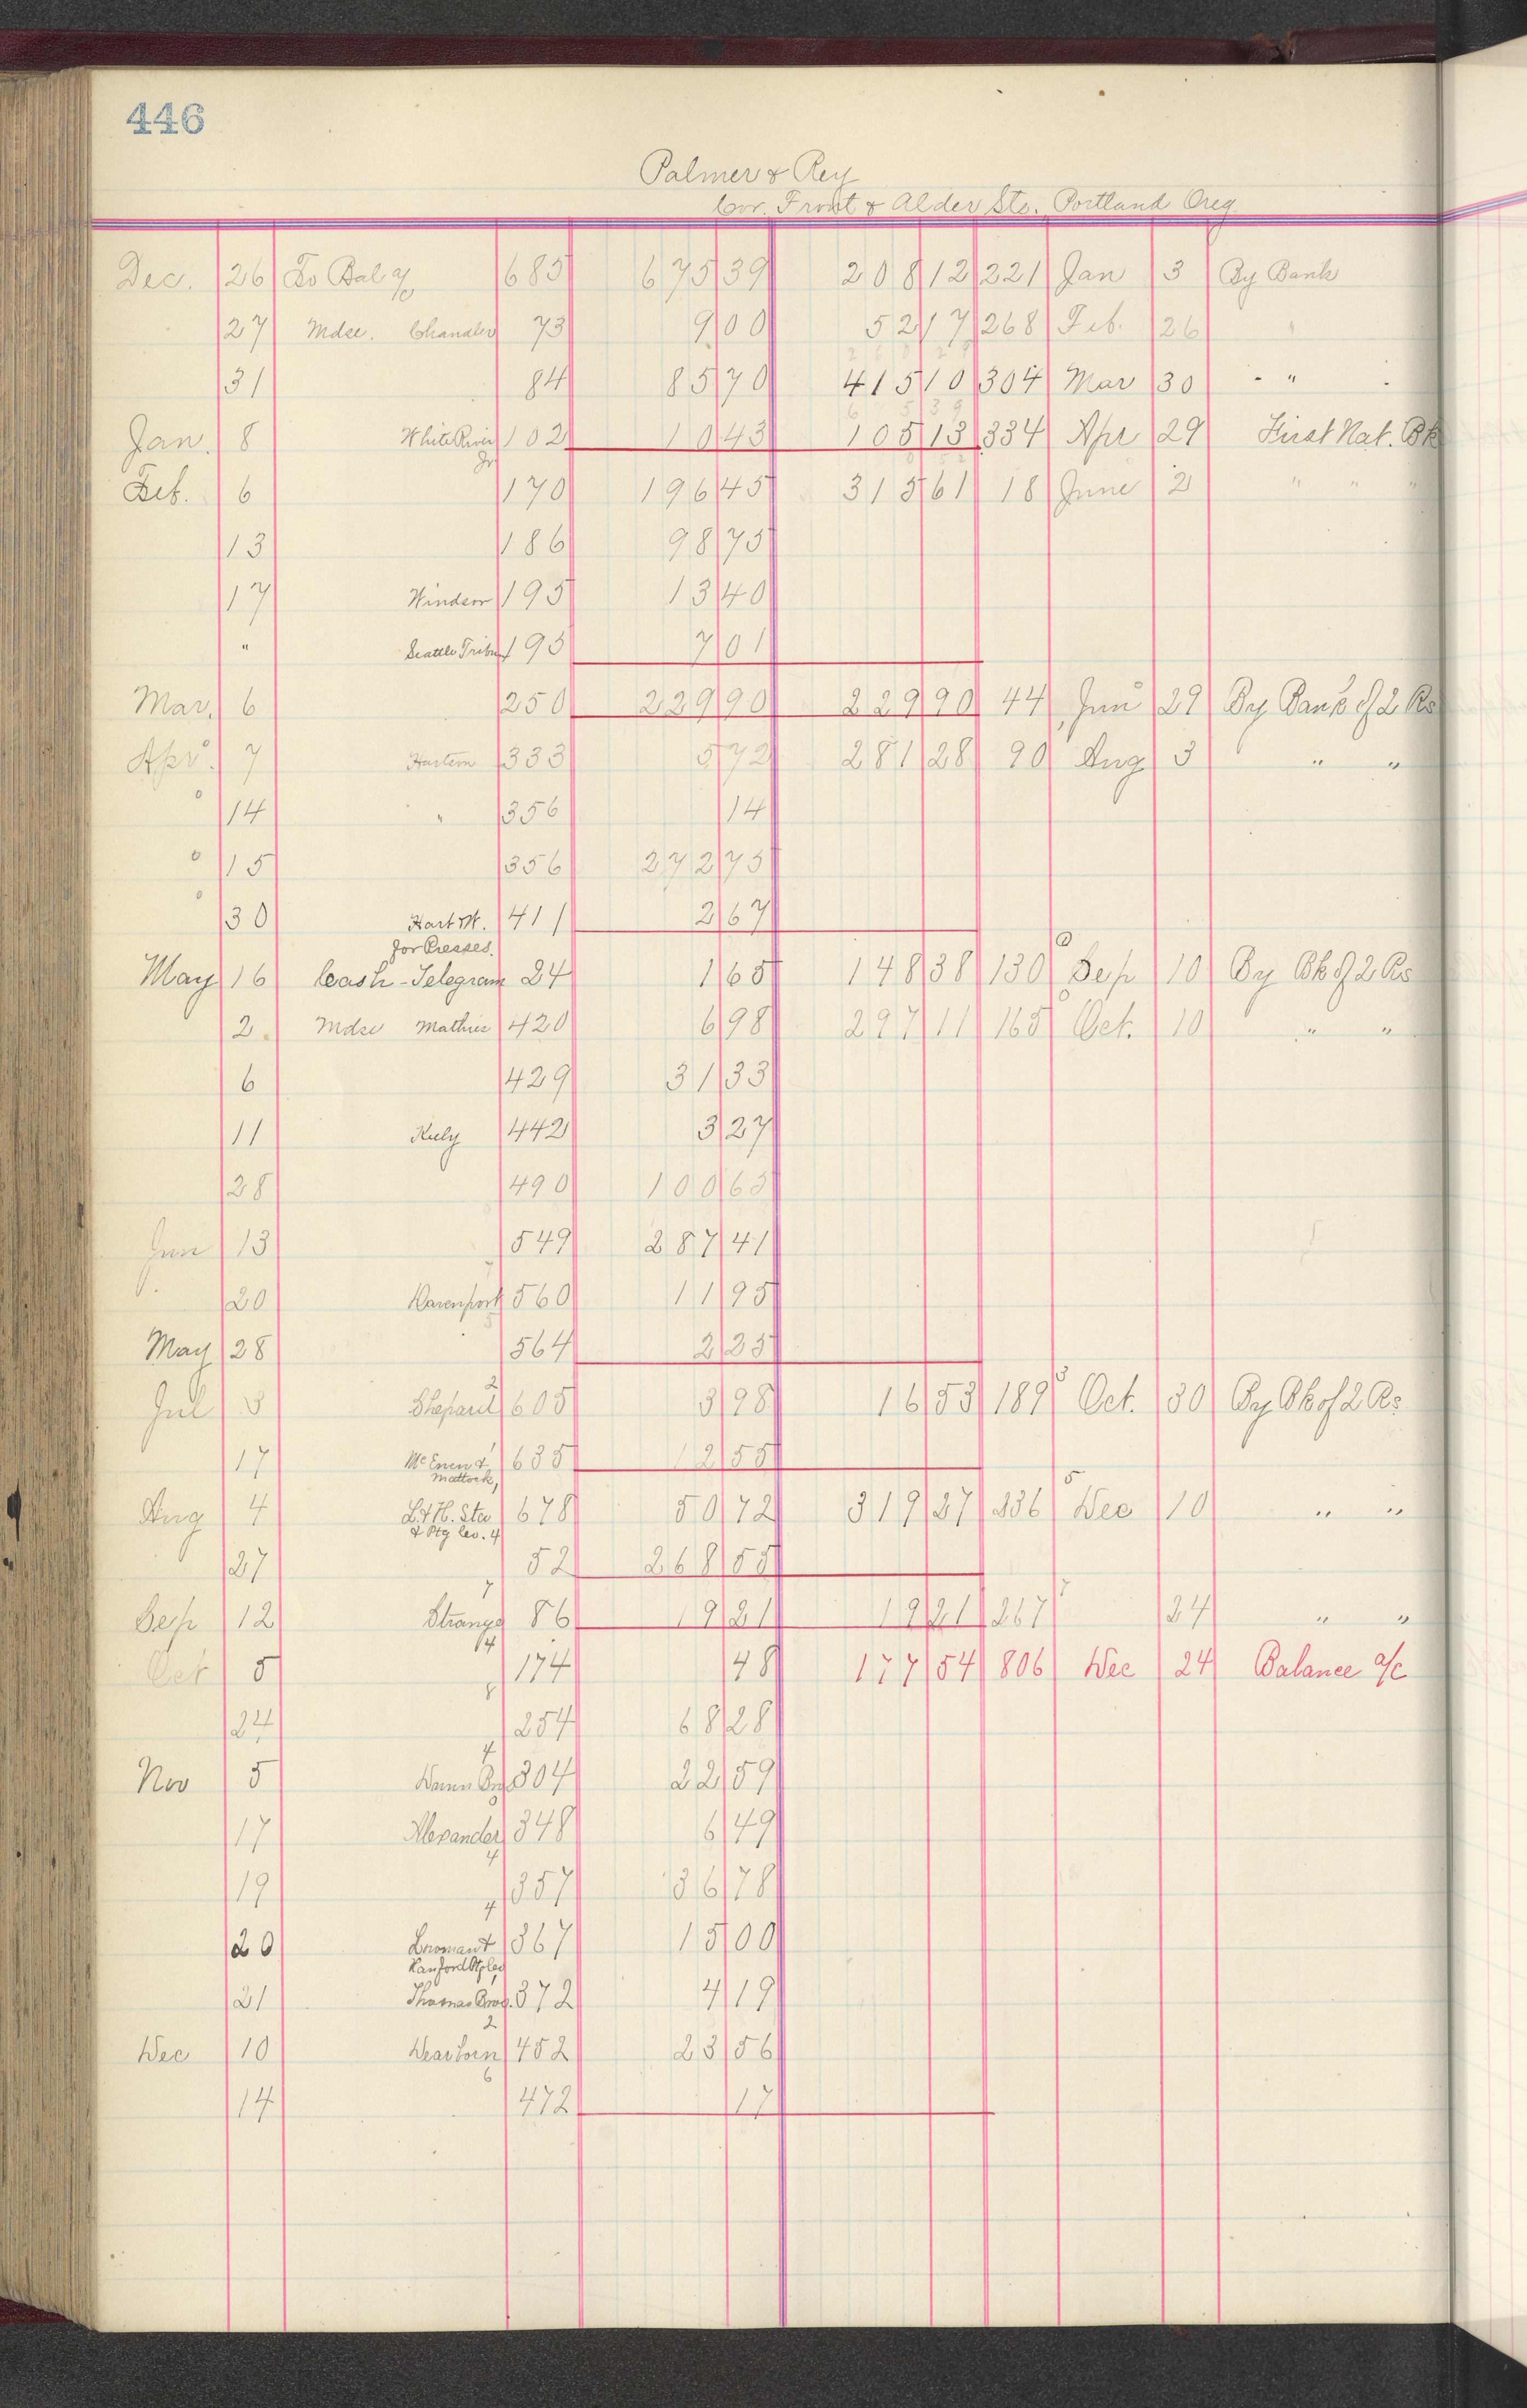 446
Palmer & Rey
Cor. Front & Alder Sts. Portland Oreg.
Dec. 26 To Bal a/c 685 675 39 208 12 221 Jan 3 By Bank
27 Mdse. Chandler 73 9 00 52 17 268 Feb. 26 "
31 84 85 70 415 10 304 Mar 30 "
Jan. 8 White River 102 10 43 105 13 334 Apr 29 First Nat. Bk
Jr
Feb. 6 170 196 45 315 61 18 June 2 " " "
13 186 98 75
17 Windsor 195 13 40
" Seattle Tribu 195 7 01
Mar. 6 250 229 90 229 90 44 Jun 29 By Bank of 2 Rs
Apr. 7 333 5 72 281 28 90 Aug 3 " "
14 " 356 14
15 356 272 75
30 Hart M. 411 2 67
for Presses.
May 16 Cash - Telegram 24 1 65 148 38 130 Sep 10 By Bk of 2 Rs
2 Mdse Mathies 420 6 98 297 11 165 Oct. 10 " "
6 429 31 33
11 Kuly 442 3 27
28 490 100 65
Jun 13 549 287 41
20 Davenport 560 11 95
May 28 564 2 25
2
Jul 3 605 3 98 16 53 189 Oct. 30 By Bk of 2 Rs
17 McEnen & 635 12 55
Mattock,
5
Aug 4 L & H. Sta 678 50 72 319 27 236 Dec 10 " "
& Ptg Co. 4
27 52 268 55
7
Sep 12 Strange 86 19 21 19 21 267 24 " "
4
Oct 5 174 48 177 54 806 Dec 24 Balance a/c
8
24 254 68 28
4
Nov 5 304 22 59
17 Alexander 348 6 49
4
19 357 36 78
4
20 Lowman & 367 15 00
Hanford Ptg Co
21 Thomas Bros. 372 4 19
2
Dec 10 Dearborn 452 23 56
6
14 472 17